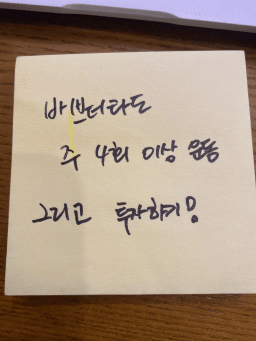 바쁘더라도
주 4회 이상 운동
그리고 투자하기!